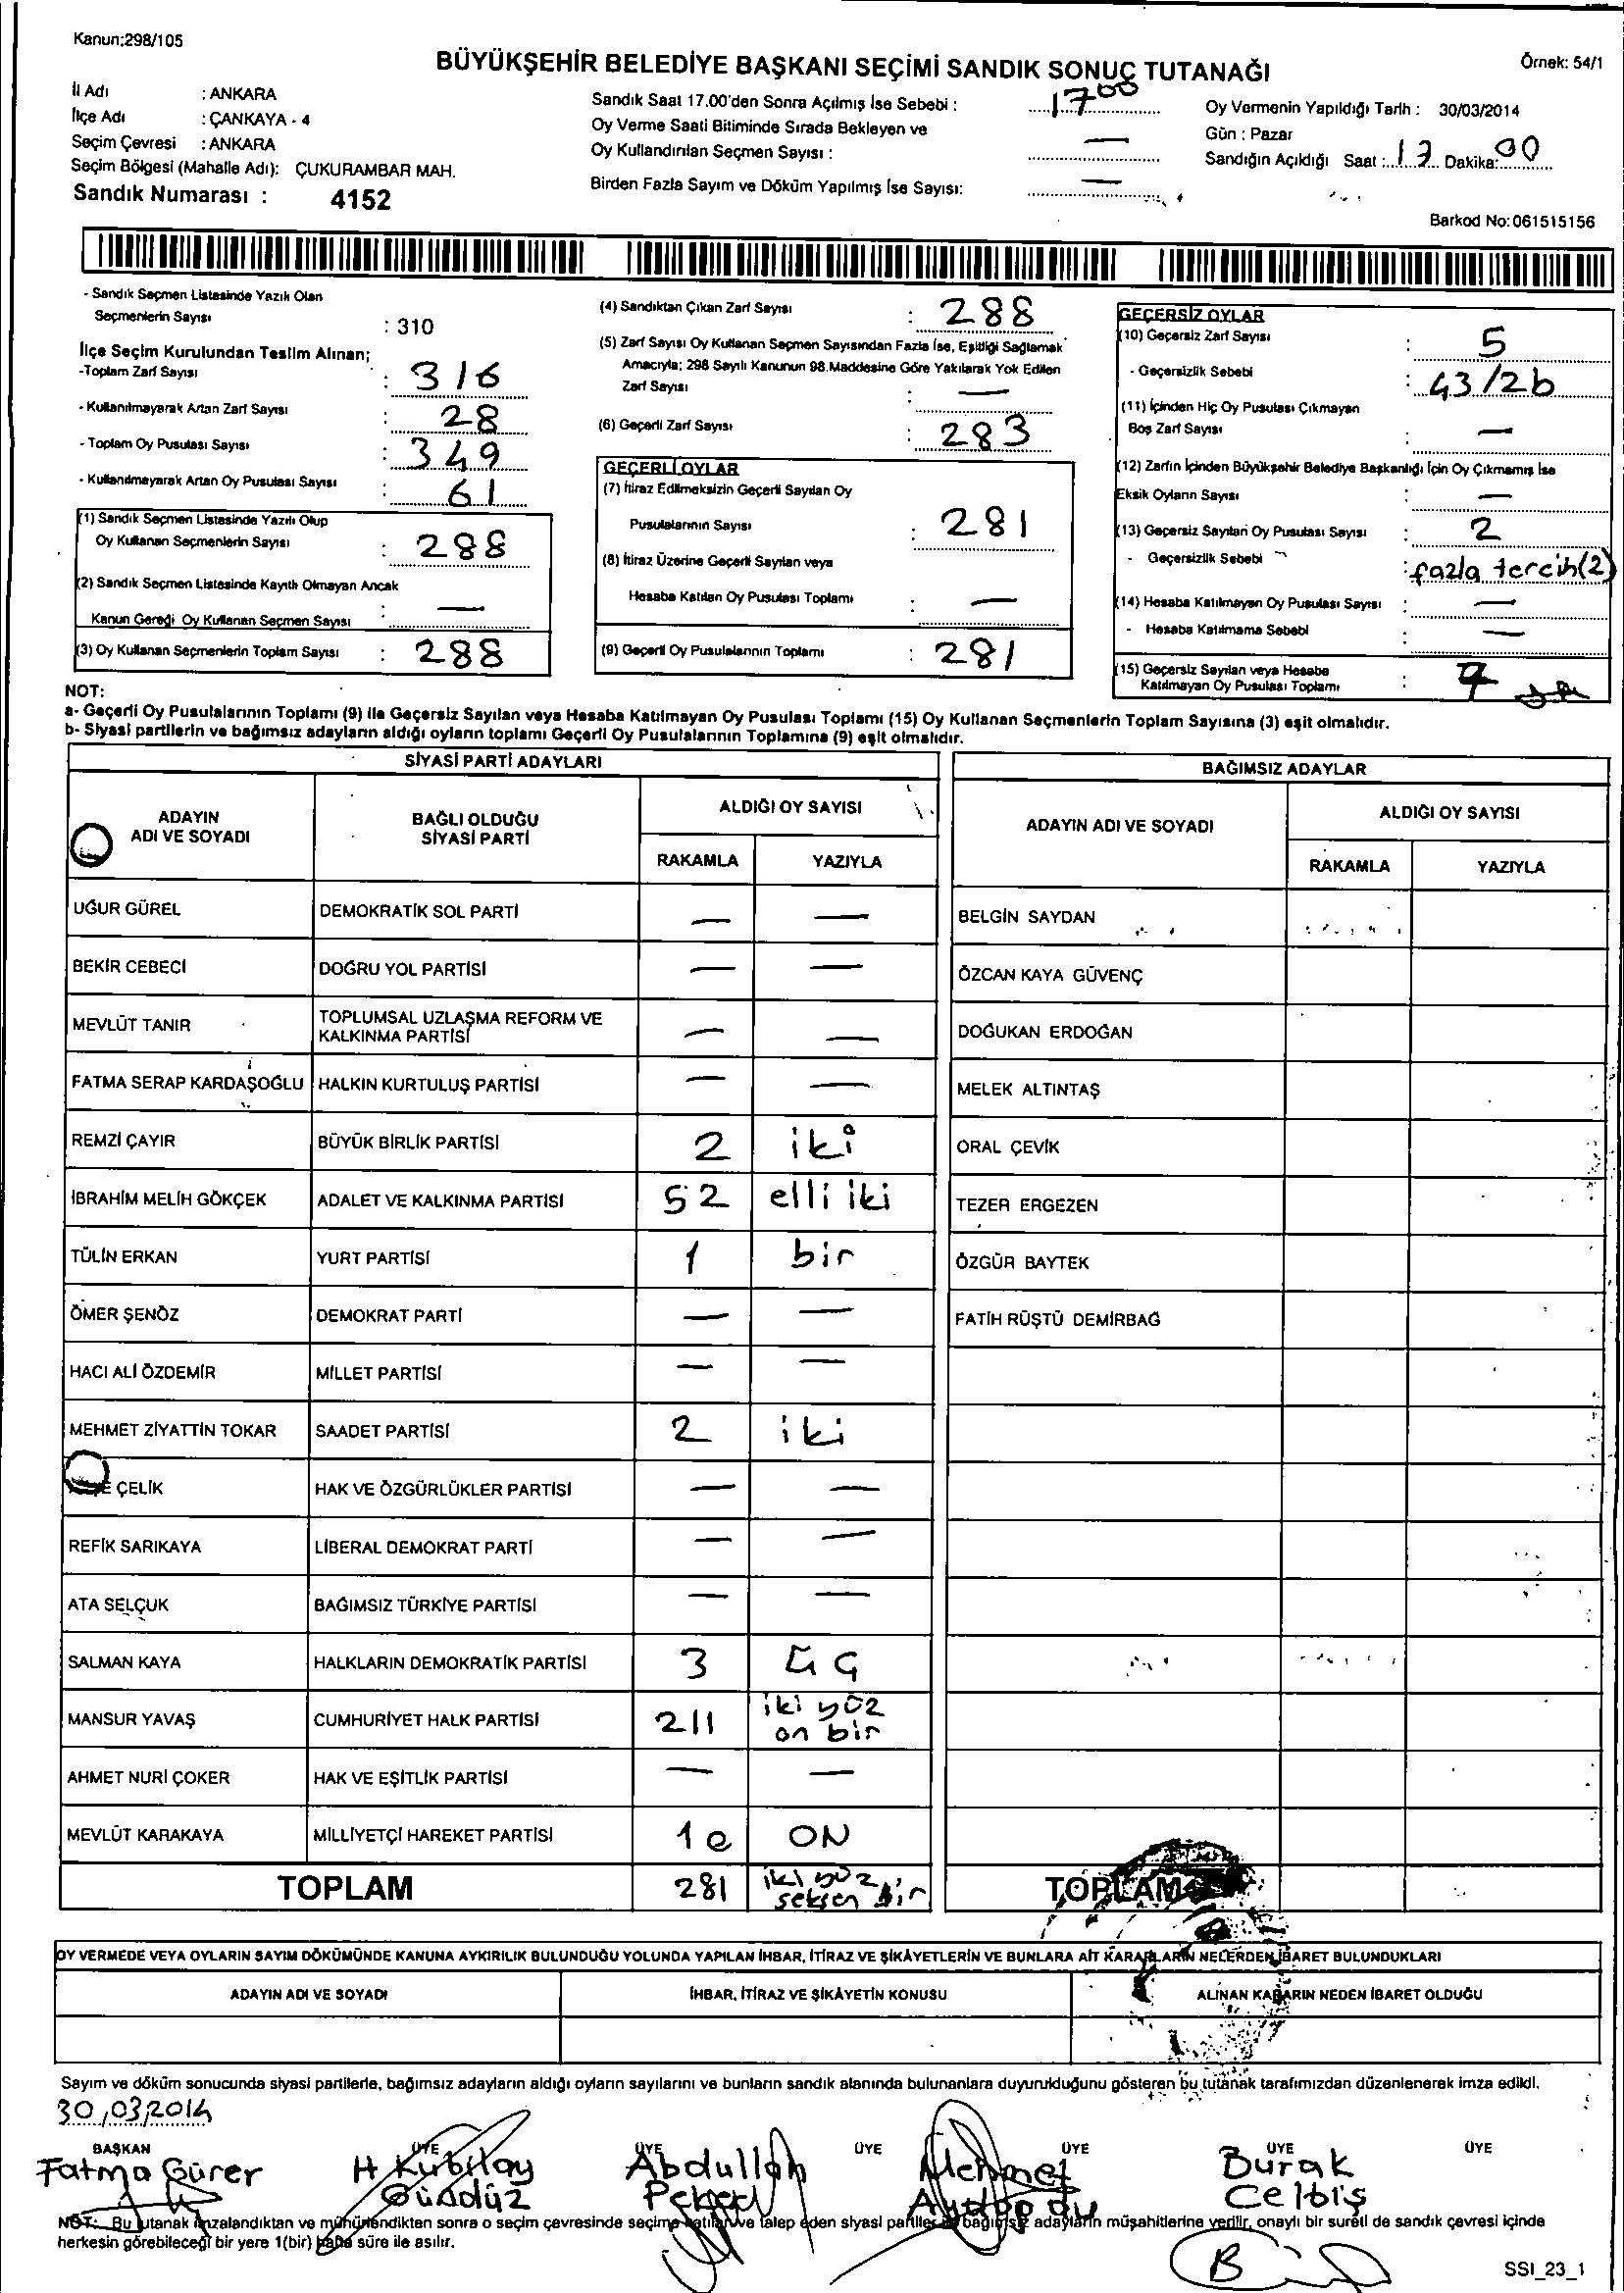 Kanun;298/105
BÜYÜKŞEHİR BELEDİYE BAŞKANI SEÇİMİ SANDIK SONUÇ TUTANAĞI
Örnek: 54/1
İl Adı : ANKARA
İlçe Adı : ÇANKAYA - 4
Seçim Çevresi : ANKARA
Seçim Bölgesi (Mahalle Adı): ÇUKURAMBAR MAH.
Sandık Numarası : 4152
Sandık Saat 17.00'den Sonra Açılmış İse Sebebi : 1700
Oy Verme Saati Bitiminde Sırada Bekleyen ve
Oy Kullandırılan Seçmen Sayısı : —
Birden Fazla Sayım ve Döküm Yapılmış İse Sayısı: —
Oy Vermenin Yapıldığı Tarih : 30/03/2014
Gün : Pazar
Sandığın Açıldığı Saat : 17 Dakika: 00
Barkod No: 061515156
- Sandık Seçmen Listesinde Yazılı Olan
Seçmenlerin Sayısı : 310
İlçe Seçim Kurulundan Teslim Alınan;
-Toplam Zarf Sayısı : 316
- Kullanılmayarak Artan Zarf Sayısı : 28
- Toplam Oy Pusulası Sayısı : 349
- Kullanılmayarak Artan Oy Pusulası Sayısı : 61
(1) Sandık Seçmen Listesinde Yazılı Olup
Oy Kullanan Seçmenlerin Sayısı : 288
(2) Sandık Seçmen Listesinde Kayıtlı Olmayan Ancak
Kanun Gereği Oy Kullanan Seçmen Sayısı : —
(3) Oy Kullanan Seçmenlerin Toplam Sayısı : 288
(4) Sandıktan Çıkan Zarf Sayısı : 288
(5) Zarf Sayısı Oy Kullanan Seçmen Sayısından Fazla İse, Eşitliği Sağlamak
Amacıyla; 298 Sayılı Kanunun 98.Maddesine Göre Yakılarak Yok Edilen
Zarf Sayısı : —
(6) Geçerli Zarf Sayısı : 283
GEÇERLİ OYLAR
(7) İtiraz Edilmeksizin Geçerli Sayılan Oy
Pusulalarının Sayısı : 281
(8) İtiraz Üzerine Geçerli Sayılan veya
Hesaba Katılan Oy Pusulası Toplamı : —
(9) Geçerli Oy Pusulalarının Toplamı : 281
GEÇERSİZ OYLAR
(10) Geçersiz Zarf Sayısı : 5
- Geçersizlik Sebebi : 43/2b
(11) İçinden Hiç Oy Pusulası Çıkmayan
Boş Zarf Sayısı : —
(12) Zarfın İçinden Büyükşehir Belediye Başkanlığı İçin Oy Çıkmamış İse
Eksik Oyların Sayısı : —
(13) Geçersiz Sayılan Oy Pusulası Sayısı : 2
- Geçersizlik Sebebi : fazla tercih(2)
(14) Hesaba Katılmayan Oy Pusulası Sayısı : —
- Hesaba Katılmama Sebebi : —
(15) Geçersiz Sayılan veya Hesaba
Katılmayan Oy Pusulası Toplamı : 7
NOT:
a- Geçerli Oy Pusulalarının Toplamı (9) ile Geçersiz Sayılan veya Hesaba Katılmayan Oy Pusulası Toplamı (15) Oy Kullanan Seçmenlerin Toplam Sayısına (3) eşit olmalıdır.
b- Siyasi partilerin ve bağımsız adayların aldığı oyların toplamı Geçerli Oy Pusulalarının Toplamına (9) eşit olmalıdır.
SİYASİ PARTİ ADAYLARI
ADAYIN ADI VE SOYADI
BAĞLI OLDUĞU SİYASİ PARTİ
ALDIĞI OY SAYISI
RAKAMLA YAZIYLA
UĞUR GÜREL DEMOKRATİK SOL PARTİ — —
BEKİR CEBECİ DOĞRU YOL PARTİSİ — —
MEVLÜT TANIR TOPLUMSAL UZLAŞMA REFORM VE KALKINMA PARTİSİ — —
FATMA SERAP KARDAŞOĞLU HALKIN KURTULUŞ PARTİSİ — —
REMZİ ÇAYIR BÜYÜK BİRLİK PARTİSİ 2 iki
İBRAHİM MELİH GÖKÇEK ADALET VE KALKINMA PARTİSİ 52 elli iki
TÜLİN ERKAN YURT PARTİSİ 1 bir
ÖMER ŞENÖZ DEMOKRAT PARTİ — —
HACI ALİ ÖZDEMİR MİLLET PARTİSİ — —
MEHMET ZİYATTİN TOKAR SAADET PARTİSİ 2 iki
ÇELİK HAK VE ÖZGÜRLÜKLER PARTİSİ — —
REFİK SARIKAYA LİBERAL DEMOKRAT PARTİ — —
ATA SELÇUK BAĞIMSIZ TÜRKİYE PARTİSİ — —
SALMAN KAYA HALKLARIN DEMOKRATİK PARTİSİ 3 üç
MANSUR YAVAŞ CUMHURİYET HALK PARTİSİ 211 iki yüz on bir
AHMET NURİ ÇOKER HAK VE EŞİTLİK PARTİSİ — —
MEVLÜT KARAKAYA MİLLİYETÇİ HAREKET PARTİSİ 10 ON
TOPLAM 281 iki yüz seksen bir
BAĞIMSIZ ADAYLAR
ADAYIN ADI VE SOYADI
ALDIĞI OY SAYISI
RAKAMLA YAZIYLA
BELGİN SAYDAN
ÖZCAN KAYA GÜVENÇ
DOĞUKAN ERDOĞAN
MELEK ALTINTAŞ
ORAL ÇEVİK
TEZER ERGEZEN
ÖZGÜR BAYTEK
FATİH RÜŞTÜ DEMİRBAĞ
TOPLAM
OY VERMEDE VEYA OYLARIN SAYIM DÖKÜMÜNDE KANUNA AYKIRILIK BULUNDUĞU YOLUNDA YAPILAN İHBAR, İTİRAZ VE ŞİKÂYETLERİN VE BUNLARA AİT KARARLARIN NELERDEN İBARET BULUNDUKLARI
ADAYIN ADI VE SOYADI
İHBAR, İTİRAZ VE ŞİKÂYETİN KONUSU
ALINAN KARARIN NEDEN İBARET OLDUĞU
Sayım ve döküm sonucunda siyasi partilerle, bağımsız adayların aldığı oyların sayılarını ve bunların sandık alanında bulunanlara duyurulduğunu gösteren bu tutanak tarafımızdan düzenlenerek imza edildi.
30,03,2014
BAŞKAN ÜYE ÜYE ÜYE ÜYE ÜYE ÜYE
Fatma Gürer
H Kubilay Gündüz
Abdullah
Mehmet
Burak Celbiş
NOT: Bu tutanak imzalandıktan ve mühürlendikten sonra o seçim çevresinde seçime katılan ve talep eden siyasi partiler ve bağımsız adayların müşahitlerine verilir, onaylı bir sureti de sandık çevresi içinde
herkesin görebileceği bir yere 1(bir) hafta süre ile asılır.
SSI_23_1